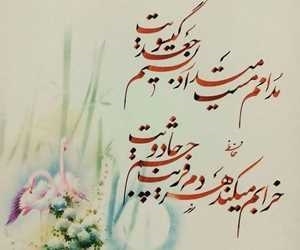 مدامم مست میدارد نسیم جعد گیسویت
خرابم میکند هر دم فریب چشم جادویت
حافظ